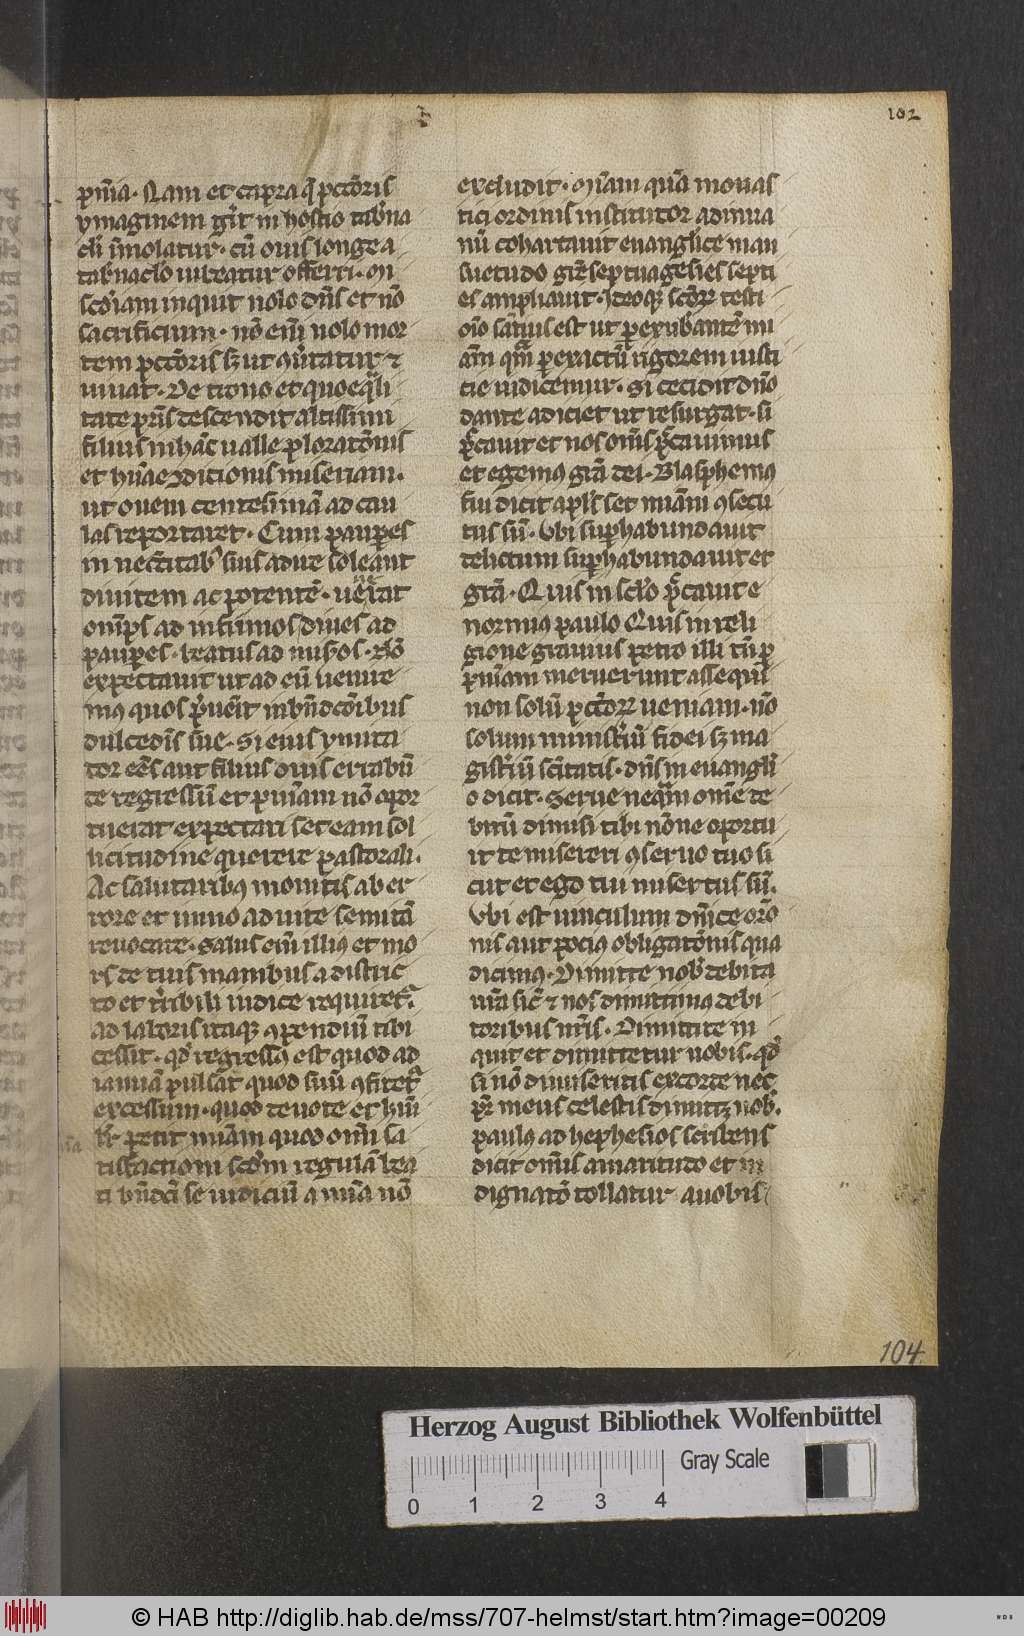 102
pniā. Nam et capra q̄ pctōris
ymaginem gīt in hostio tab'na
cli īmolatur. cū ouis longe a
tab'naclo iubeatur offerri. M
scōiam inquit uolo dn̄s et nō
sacrificium. nō enī uolo mor
tem pctōris s; ut 9ūtatur et
uiuat. De trono et quoeq̄li
tate pr̄is descendit altissimi
filius in hāc uallē ploratōnis
et hūa 9dicionis miseriam.
ut ouem centesimā ad cau
las reportaret. Cum paup̄es
in nec̄citab' suis adire soleant
diuitem ac potentē. uen̄at
om̄ps ad infimos diues ad
paup̄es. beatus ad mis̄os. Nō
expectauit ut ad eū uenire
mus quos p̄uen̄it in bn̄dcōibus
dulcedīs sue. Si eius ymita
tor ēes aut filius ouis errabū
de regressū et pniam nō opor
tuerat expectari set eam sol
licitudine querere pastorali.
Ac salutarib9 monitis ab er
rore et inuio ad uite semitā
reuocare. Salus enī illi9 et mo
rs de tuis manibus a distric
to et t̄ribili iudice requiret'.
ad laboris itaq; 9pendiū tibi
cessit. qd' regress9 est quod ad
ianuā pulsāt quod suū 9fitet'
excessum. quod deuote et hūi
lit' petit niam quod om̄i sa
tisfactioni scdm regulā bea
ti bn̄dcī se iudiciū a mīa nō
excludit. Mīam quā monas
tici ordinis institutor adinua
nū cohartauit euanglice man
suetudo gr̄e septuagesies septi
es ampliauit. Ideoq; sctōr' testi
oīo sanius est ut p exub'antē mi
am qm̄ p exactū rigorem iusti
cie iudicemur. Si cecidit dn̄o
dante adiciet ut resurgat. si
p̄ccauit et nos om̄s p̄ccauimus
et egem9 grā dei. Blasphem9
fui dicit apl's set mīam 9secu
tus sū. Vbi sup̄habundauit
delictum sup̄habundauit et
grā. Quis in sclo p̄ccauit e
normius paulo Quis in reli
gione grauius petro illi tn̄ p
pniam meruerunt assequi
non solū pctōr' ueniam. nō
solum minist'iū fidei s; ma
gist'iū scītatis. Dn̄s in euangli
o dicit. Serue neq̄m om̄e de
bitū dimisi tibi nōne oportu
it te misereri 9seruo tuo si
cut et ego tui misertus sū.
Vbi est uinculum dn̄ice orō
nis aut poci9 obligatōnis qua
dicim9. Dimitte nob' debita
nr̄a sic' et nos dimittim9 debi
toribus nr̄is. Dimittite in
quit et dimittetur uobis. qd'
si nō dimiseritis ex corde nec
p̄r meus celestis dimittz uob'.
paul9 ad hephesios scribens
dicit om̄is amaritudo et in
dignatō tollatur a uobis
104
Herzog August Bibliothek Wolfenbüttel
Gray Scale
0 1 2 3 4
© HAB http://diglib.hab.de/mss/707-helmst/start.htm?image=00209